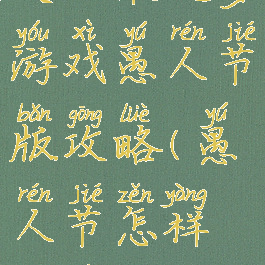 yóu xì yú rén jié
游戏愚人节
bǎn gōng lüè yú
版攻略(愚
rén jié zěn yàng
人节怎样